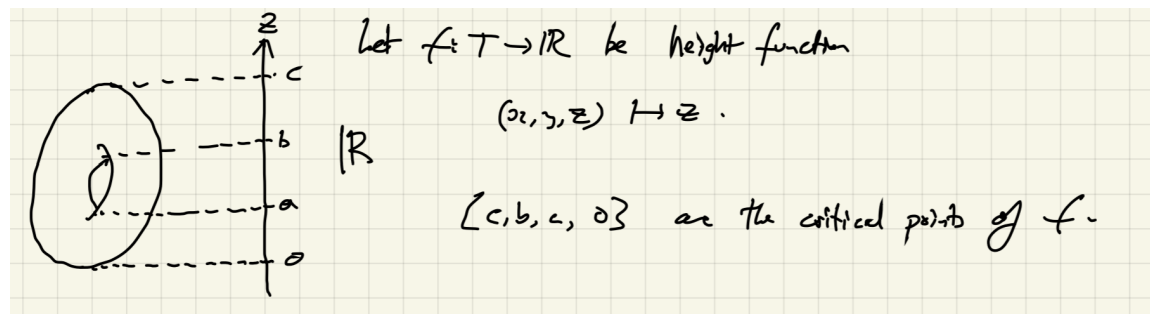 z
c
b
a
0
Let f: T → ℝ be height function
(x, y, z) ↦ z .
ℝ
{c, b, a, 0} are the critical points of f.